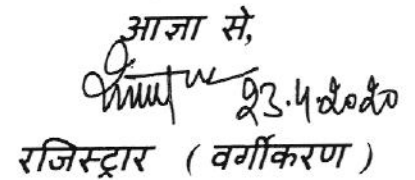 आज्ञा से,
23.4.2020
रजिस्ट्रार ( वर्गीकरण )